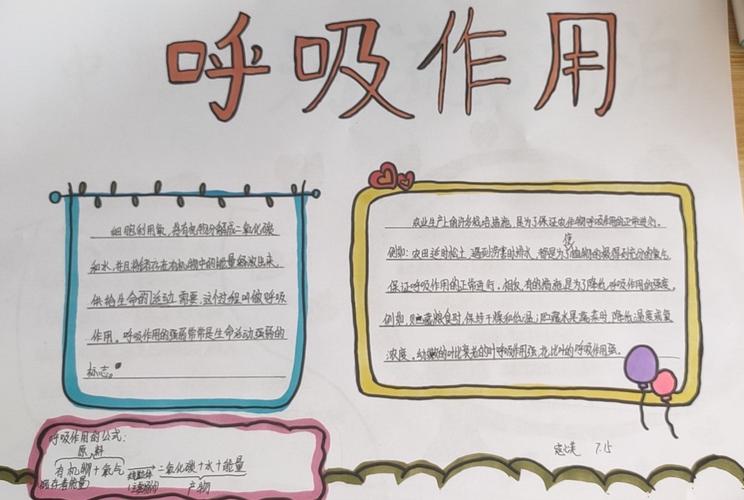 呼吸作用
细胞利用氧,将有机物分解成二氧化碳
和水,并且将储存在有机物中的能量释放出来,
供给生命的活动需要,这个过程叫做呼吸
作用。呼吸作用的强弱常常是生命活动强弱的
标志。
农业生产上的许多栽培措施,是为了保证农作物呼吸作用的正常进行。
例如:农田适时松土、遇到涝害时排水,都是为了使植物的根得到充分的氧气,
保证呼吸作用的正常进行。相反,有的措施是为了降低呼吸作用的强度。
例如,贮藏粮食时,保持干燥和低温;贮藏水果蔬菜时,降低温度或氧
浓度。幼嫩的叶比衰老的叶呼吸作用强,花比叶的呼吸作用强。
呼吸作用的公式:
原料
有机物+氧气 二氧化碳+水+能量
储存着能量 产物
7.15